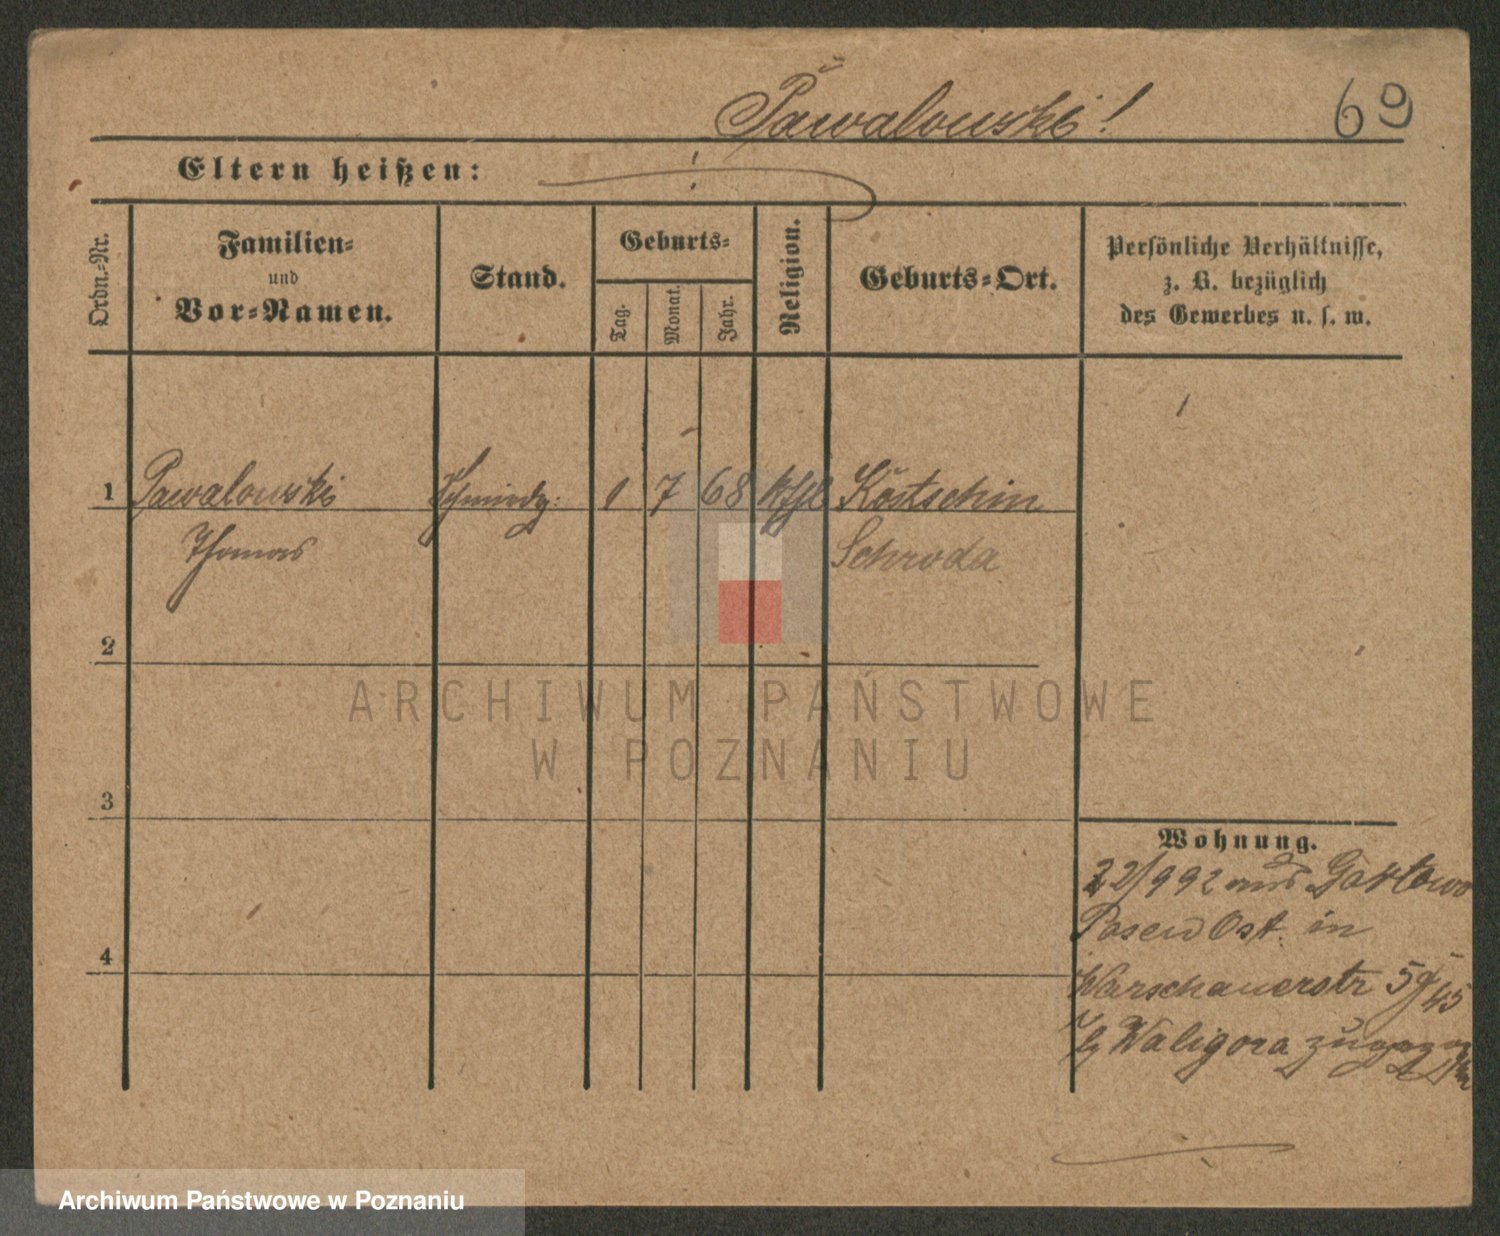 Pawalowski!
69
Eltern heißen:
Ordn.=Nr.
Familien=
und
Vor=Namen.
Stand.
Geburts=
Tag.
Monat.
Jahr.
Religion.
Geburts=Ort.
Persönliche Verhältnisse,
z. B. bezüglich
des Gewerbes u. s. w.
1 Pawalowski Schmiedg: 1 7 68 kthl Kostschin
Thomas Schroda
2
3
4
Wohnung.
22/9 92 aus
Posen Ost. in
Warschauerstr
Waligora
ARCHIWUM PAŃSTWOWE
W POZNANIU
Archiwum Państwowe w Poznaniu